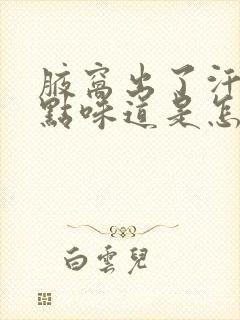 腋窩出了汗
點味道是怎
白雲兒